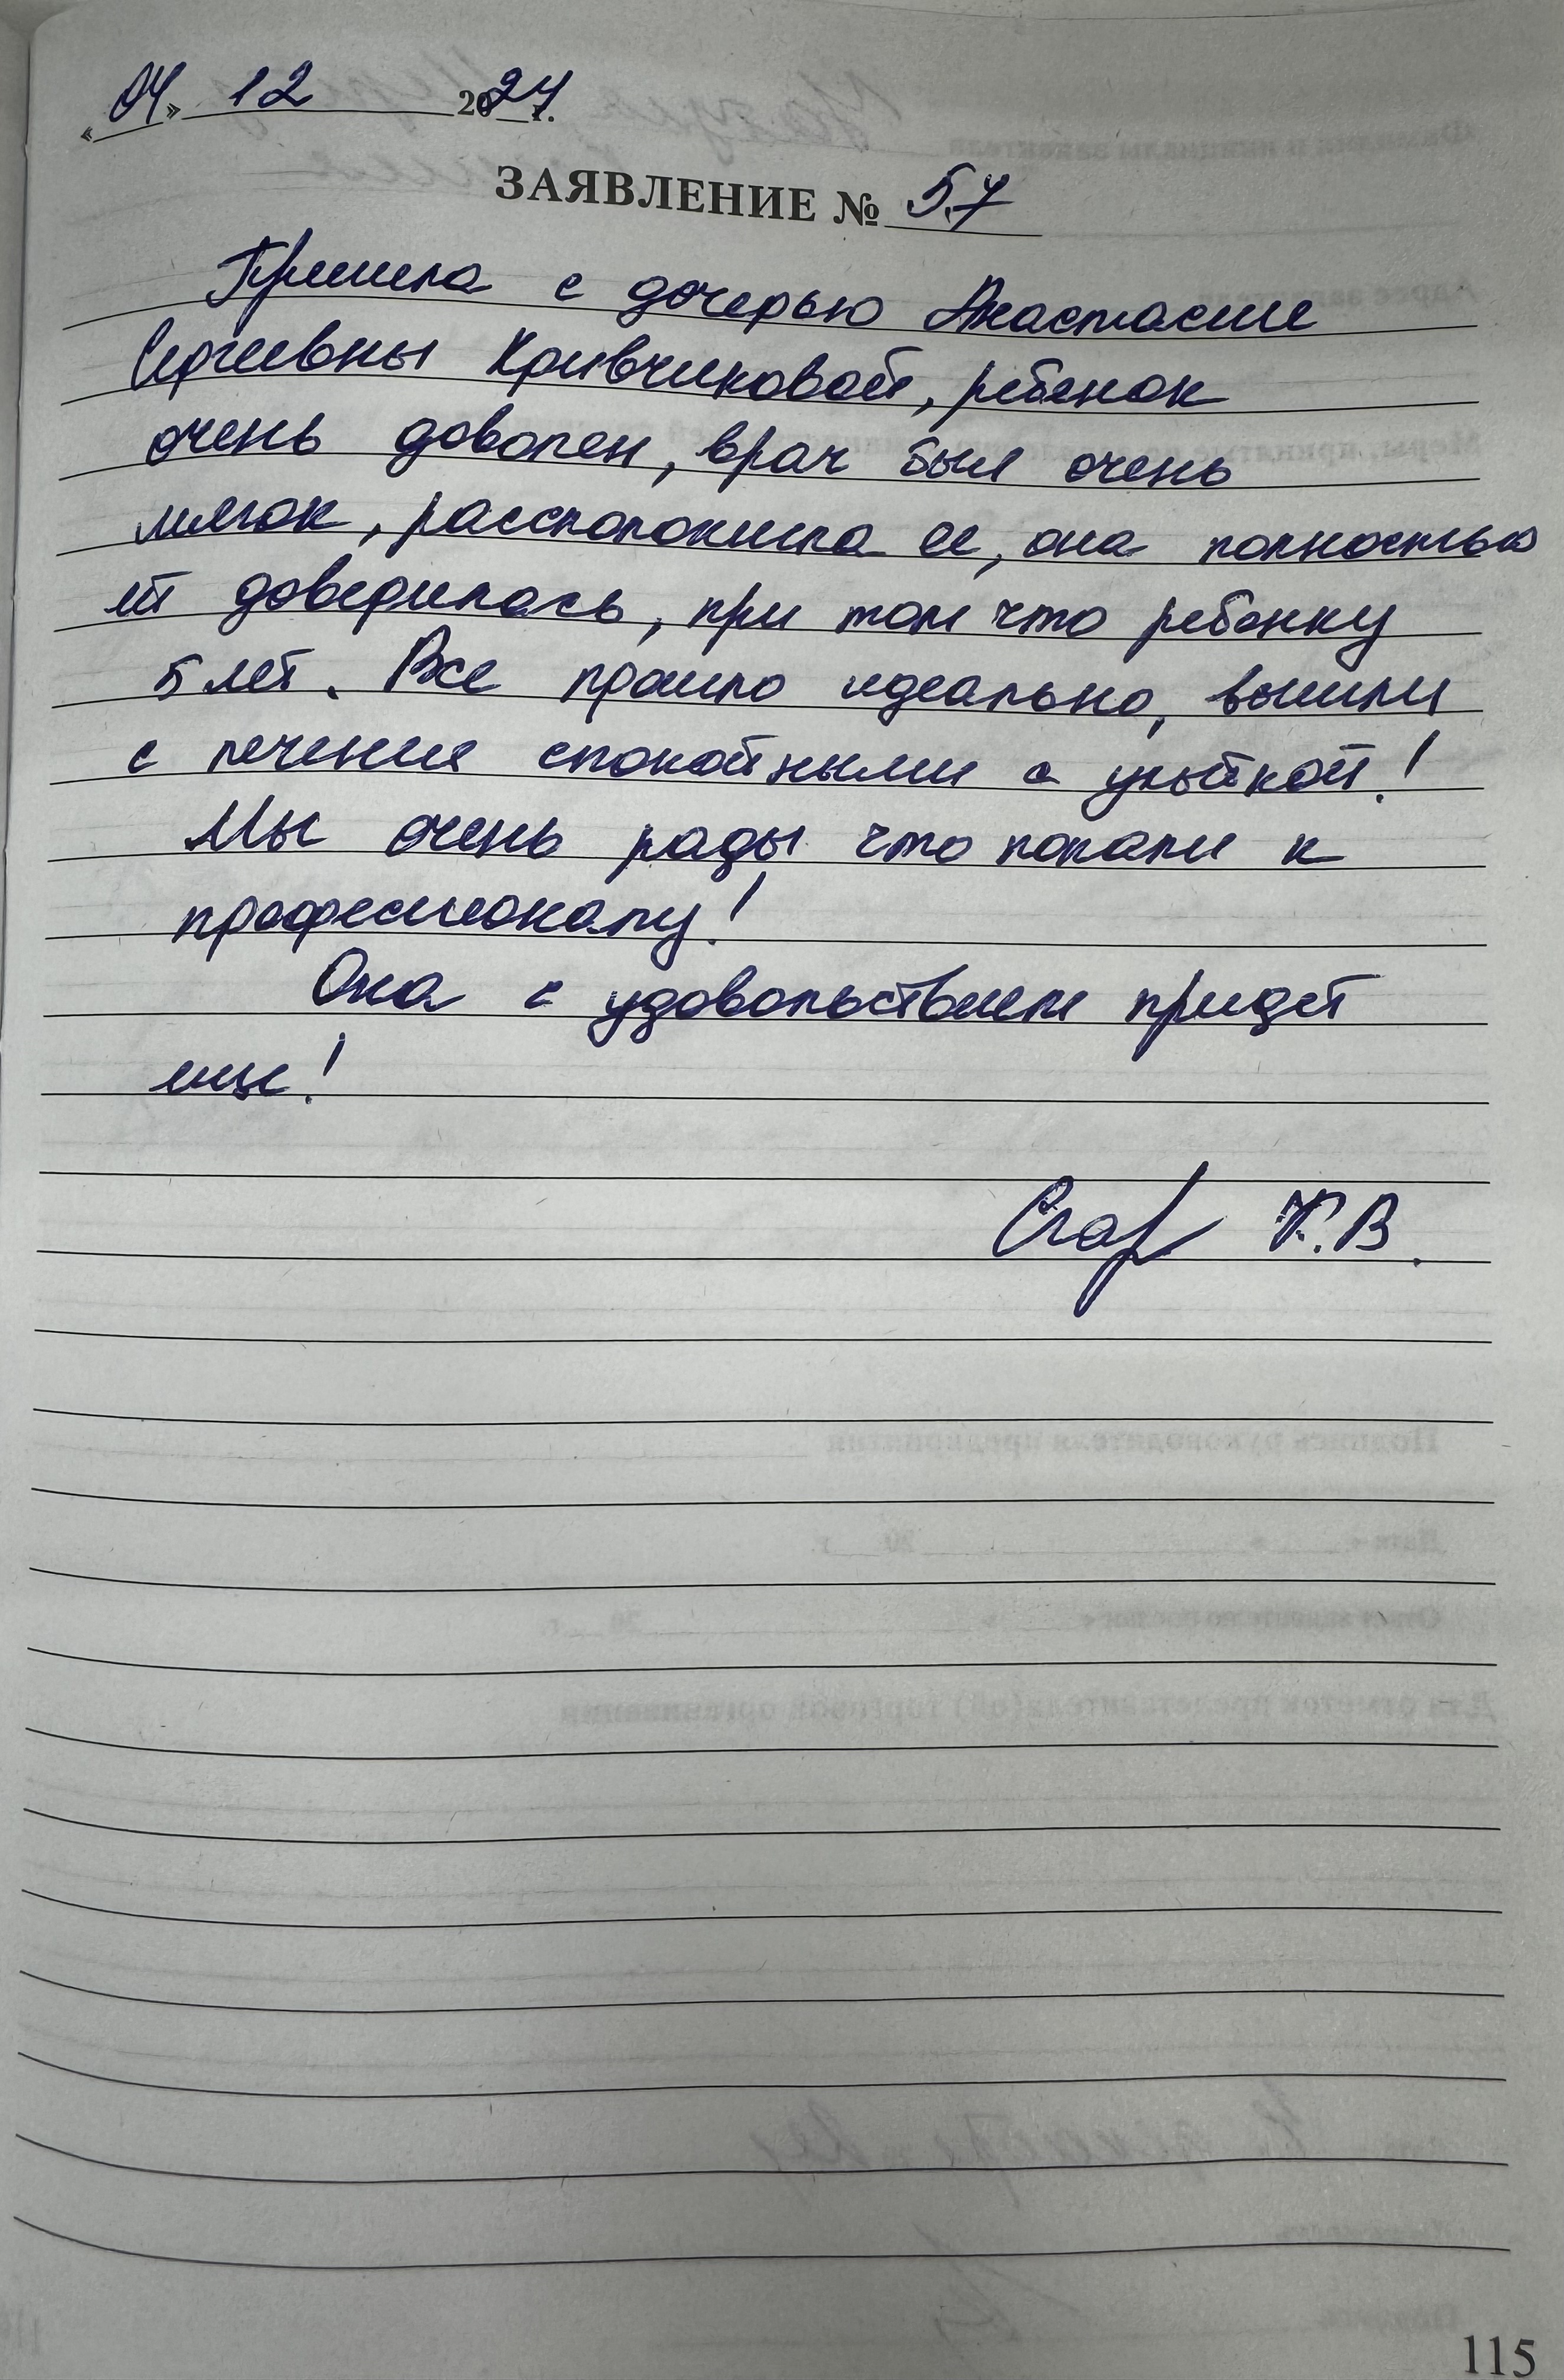 «04» 12 2024 г.
ЗАЯВЛЕНИЕ № 57
Пришла с дочерью Анастасие
Сергеевны Кривчиковой, ребенок
очень доволен, врач был очень
мягок, рассположила ее, она полностью
ей доверилась, при том что ребенку
5 лет. Все прошло идеально, вышли
с лечения спокойными с улыбкой!
Мы очень рады что попали к
профессионалу!
Она с удовольствием придет
еще!
К.В.
115